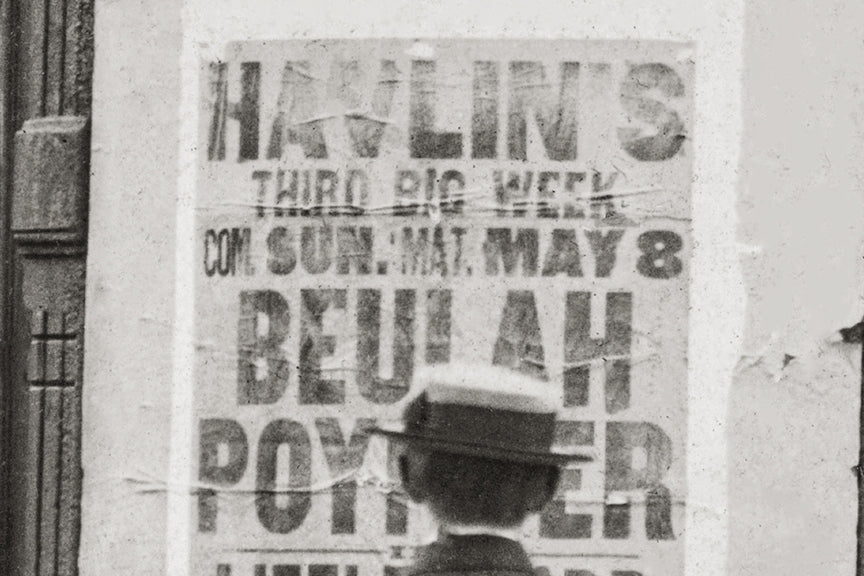 HAVLIN'S
THIRD BIG WEEK
COM. SUN. MAT. MAY 8
BEULAH
POYNTER